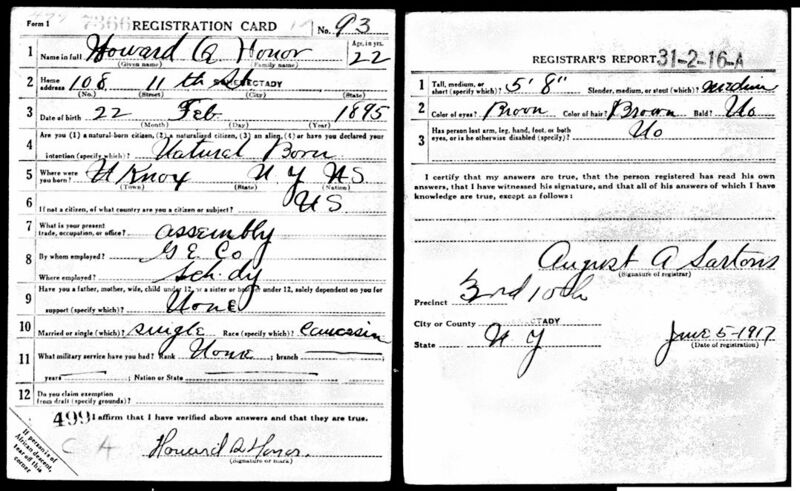 Form 1 7366 REGISTRATION CARD No. 93
1 Name in full Howard A Honor Age, in yrs. 22
(Given name) (Family name)
2 Home address 108 11th St SCHENECTADY
(No.) (Street) (City) (State)
3 Date of birth 22 Feb 1895
(Month) (Day) (Year)
4 Are you (1) a natural-born citizen, (2) a naturalized citizen, (3) an alien, (4) or have you declared your
intention (specify which)? Natural Born
5 Where were you born? N Knox N Y US
(Town) (State) (Nation)
6 If not a citizen, of what country are you a citizen or subject? US
7 What is your present trade, occupation, or office? assembly
8 By whom employed? G E Co
Where employed? Sch-dy
9 Have you a father, mother, wife, child under 12, or a sister or brother under 12, solely dependent on you for
support (specify which)? None
10 Married or single (which)? single Race (specify which)? Caucasin
11 What military service have you had? Rank None ; branch
years ; Nation or State
12 Do you claim exemption
from draft (specify grounds)?
499 I affirm that I have verified above answers and that they are true.
C A
Howard A Honor.
(Signature or mark)
If person is of
African descent,
tear off this
corner
REGISTRAR'S REPORT 31-2-16-A
1 Tall, medium, or short (specify which)? 5' 8" Slender, medium, or stout (which)? medium
2 Color of eyes? Brown Color of hair? Brown Bald? No
3 Has person lost arm, leg, hand, foot, or both
eyes, or is he otherwise disabled (specify)? No
I certify that my answers are true, that the person registered has read his own
answers, that I have witnessed his signature, and that all of his answers of which I have
knowledge are true, except as follows:
August A Sartoris
(Signature of registrar)
Precinct 3rd 10th
City or County CTADY
State N Y June 5-1917
(Date of registration)